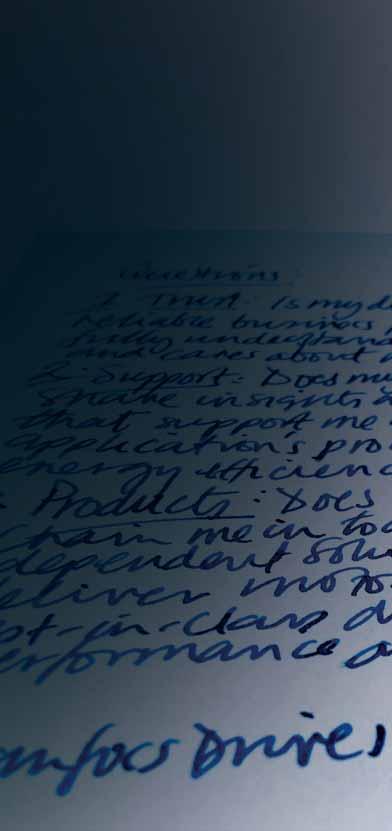 Questions:
1. Trust: Is my d
reliable business
fully understand
and cares about
2. Support: Does m
share insights &
that support me
application's pro
energy efficienc
: Products: Does
chain me in to
dependent solu
deliver motor
st-in-class d
erformance a
anfoss Drives